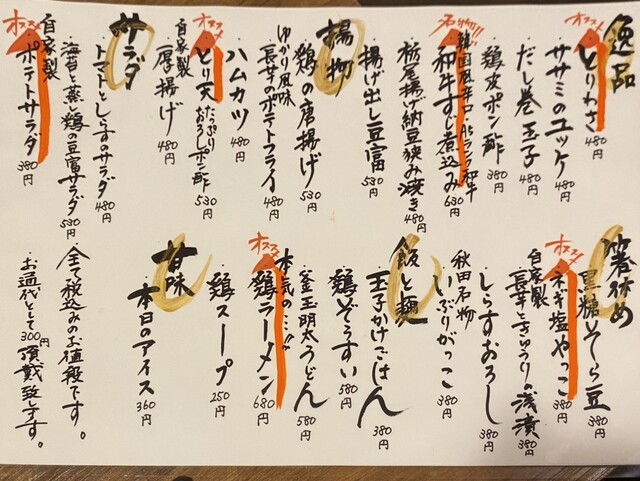 逸品
オススメ
・とりわさ 480円
・ササミのユッケ 480円
・だし巻玉子 480円
・鶏皮ポン酢 380円
名物!!
韓国風辛口・A5ランク和牛
・和牛すじ煮込み 630円
・栃尾揚げ納豆狭み焼き 480円
・揚げ出し豆富 530円
揚物
・鶏の唐揚げ 530円
ゆかり風味
・長芋のポテトフライ 480円
・ハムカツ 480円
オススメ
・とり天 たっぷりおろしポン酢 530円
自家製
・厚揚げ 480円
サラダ
・トマトとしらすのサラダ 480円
・海苔と蒸し鶏の豆富サラダ 530円
オススメ
自家製
・ポテトサラダ 380円
箸休め
・黒糖そら豆 380円
オススメ
・ネギ塩やっこ 380円
自家製
・長芋ときゅうりの浅漬 380円
・しらすおろし 380円
秋田名物
・いぶりがっこ 380円
飯と麺
・玉子かけごはん 380円
・鶏ぞうすい 580円
・釜玉明太うどん 580円
本気の…!!
オススメ
・鶏ラーメン 680円
・鶏スープ 250円
甘味
・本日のアイス 360円
・全て税込みのお値段です。
・お通代として300円頂戴致します。